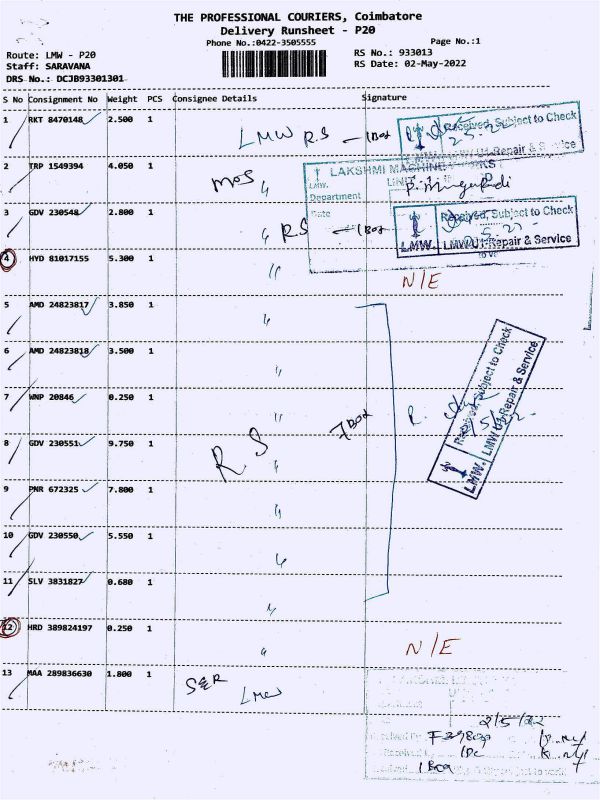 THE PROFESSIONAL COURIERS, Coimbatore
Delivery Runsheet - P20
Phone No.:0422-3505555 Page No.:1
Route: LMW - P20 RS No.: 933013
Staff: SARAVANA RS Date: 02-May-2022
DRS No.: DCJB93301301
S No Consignment No Weight PCS Consignee Details Signature
1 RKT 8470148 2.500 1 LMW R.S - 1 Box
Received, Subject to Check
LMW U1-Repair & Service
2 TRP 1549394 4.050 1 MOS "
LAKSHMI MACHINE WORKS
LMW.
Department
Date
3 GDV 230548 2.800 1 " RS - 1 Box
Received, Subject to Check
LMW. LMW U1-Repair & Service
4 HYD 81017155 5.300 1 " N/E
5 AMD 24823817 3.850 1 "
6 AMD 24823818 3.500 1 "
7 WNP 20846 0.250 1 " 7 Box
Received, Subject to Check
LMW. LMW U1-Repair & Service
8 GDV 230551 9.750 1 R S "
9 PNR 672325 7.800 1 "
10 GDV 230550 5.550 1 "
11 SLV 3831827 0.680 1 "
12 HRD 389824197 0.250 1 " N/E
13 MAA 289836630 1.800 1 S&R LMW
2/5/22
1 Box